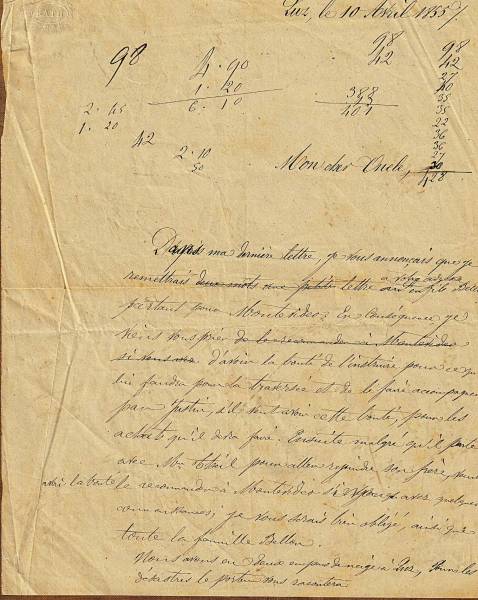 Luz, le 10 Avril 1855/.
98
4.90
1.20
6.10
2.45
1.20
42
2.10
50
98
42
388
401
98
42
27
40
35
35
22
36
36
27
30
428
Mon cher Oncle,
D'après ma dernière lettre, je vous annonçais que je
remettrais deux mots une petite lettre a votre adresse au fils Bellon
partant pour Montevideo. En Conséquence je
viens vous prier de le recommander à Montevideo
si vous d'avoir la bonté de l'instruire pour ce qui
lui faudra pour la traversée et de le faire accompagner
par Justin, s'il veut avoir cette bonté, pour les
achats qu'il devra faire. Ensuite malgré qu'il parte
avec Mr. pour aller rejoindre son frère,
avoir la bonté le recommander à Montevideo si vous y avez quelques
connaissances; je vous serais bien obligé, ainsi que
toute la famille Bellon.
Nous avons eu deux de neige à Luz, tous les
désastres le porteur vous racontera